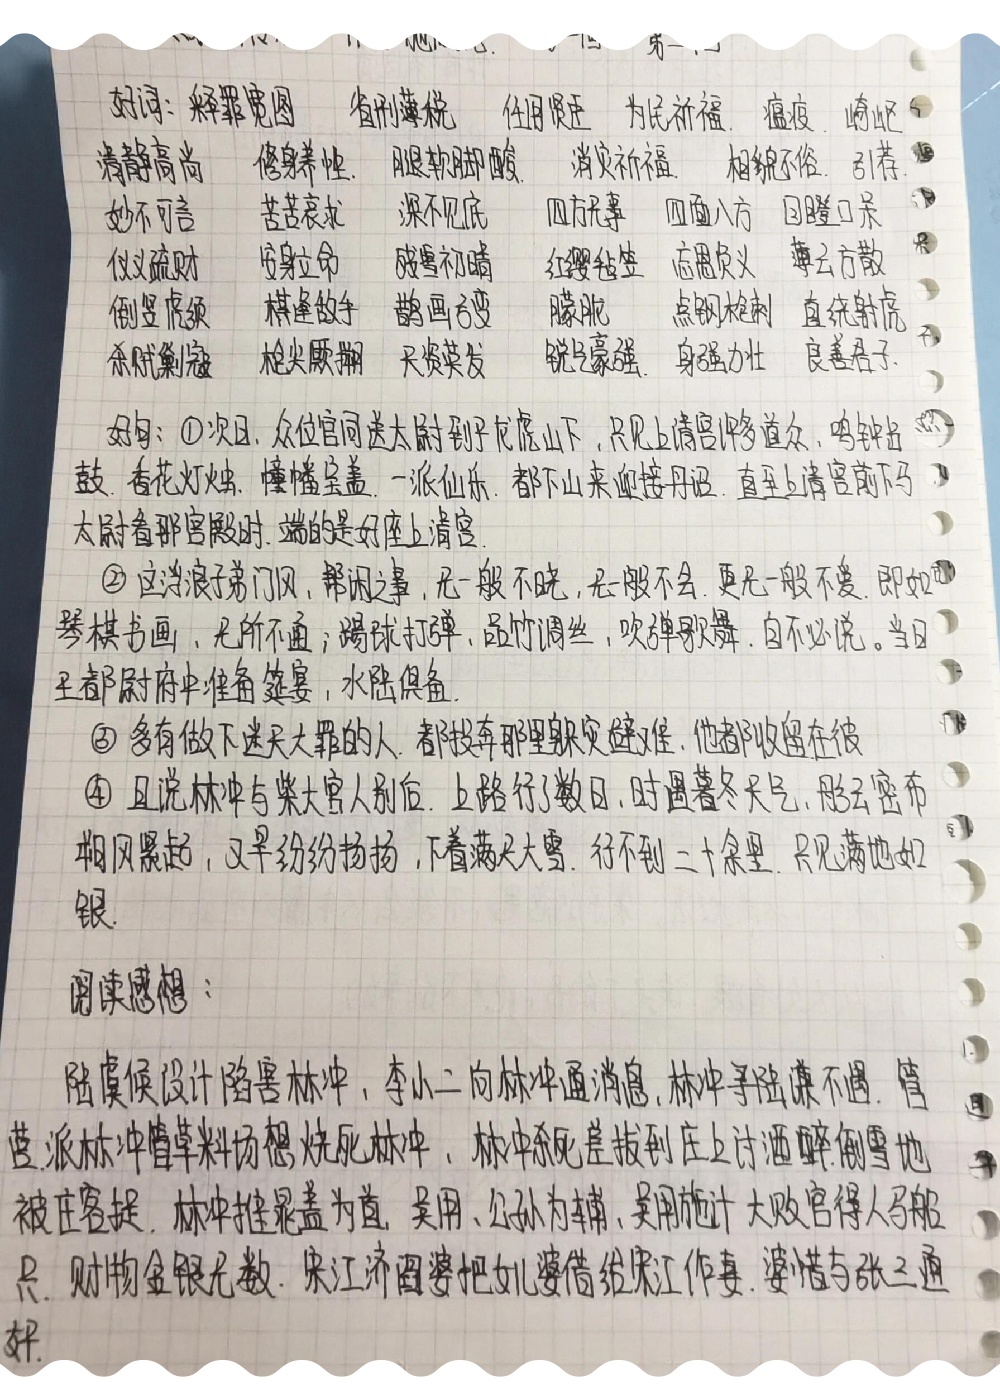 好词：释罪宽恩 省刑薄税 任用贤臣 为民祈福. 瘟疫. 崎岖
清静高尚 修身养性. 腿软脚酸. 消灾祈福. 相貌不俗. 引荐.
妙不可言 苦苦哀求 深不见底 四方无事 四面八方 目瞪口呆
仗义疏财 安身立命 残雪初晴 红缨毡笠 忘恩负义 薄云方散
倒竖虎须 棋逢敌手 鹊画弓弯 朦胧 点钢枪刺 直统射虎
杀贼剿寇 枪尖 天资英发 锐气豪强. 身强力壮 良善君子.
好句：①次日，众位官同送太尉到于龙虎山下，只见上清宫许多道众，鸣钟击
鼓. 香花灯烛. 幢幡宝盖. 一派仙乐. 都下山来迎接丹诏. 直至上清宫前下马
太尉看那宫殿时. 端的是好座上清宫.
②这浮浪子弟门风，帮闲之事，无一般不晓，无一般不会. 更无一般不爱. 即如
琴棋书画，无所不通；踢球打弹，品竹调丝，吹弹歌舞. 自不必说。当日
王都尉府中准备筵宴，水陆俱备.
③ 多有做下迷天大罪的人. 都投奔那里躲灾避难、他都收留在彼
④ 且说林冲与柴大官人别后. 上路行了数日，时遇暮冬天气，彤云密布
朔风紧起，又早纷纷扬扬，下着满天大雪. 行不到二十余里. 只见满地如
银.
阅读感想：
陆虞候设计陷害林冲，李小二向林冲通消息，林冲寻陆谦不遇. 管
营.派林冲管草料场想烧死林冲，林冲杀死差拨到庄上讨酒醉倒雪地
被庄客捉. 林冲推晁盖为首，吴用、公孙为辅、吴用施计大败官得人马船
只. 财物金银无数. 宋江济阎婆把女儿婆惜给宋江作妻. 婆惜与张三通
奸.